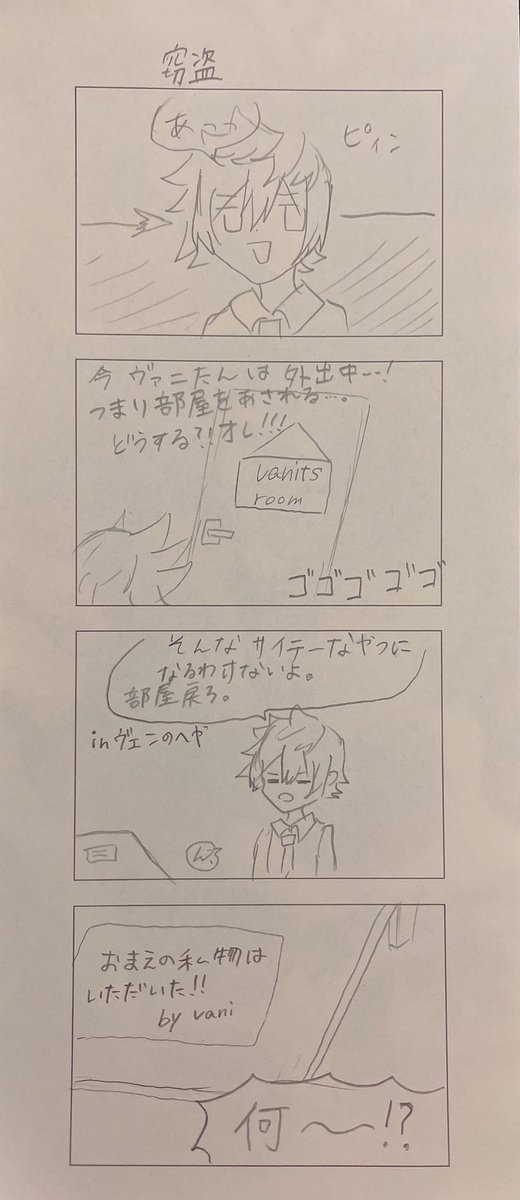 窃盗
あっ
ピィン
今 ヴァニたんは 外出中…!
つまり部屋をあされる…。
どうする?!オレ!!!
vanits
room
ゴゴゴゴゴ
そんな サイテーなやつに
なるわけないよ。
部屋戻ろ。
inヴェンのヘヤ
ん?
おまえの私物は
いただいた!!
by vani
何〜!?